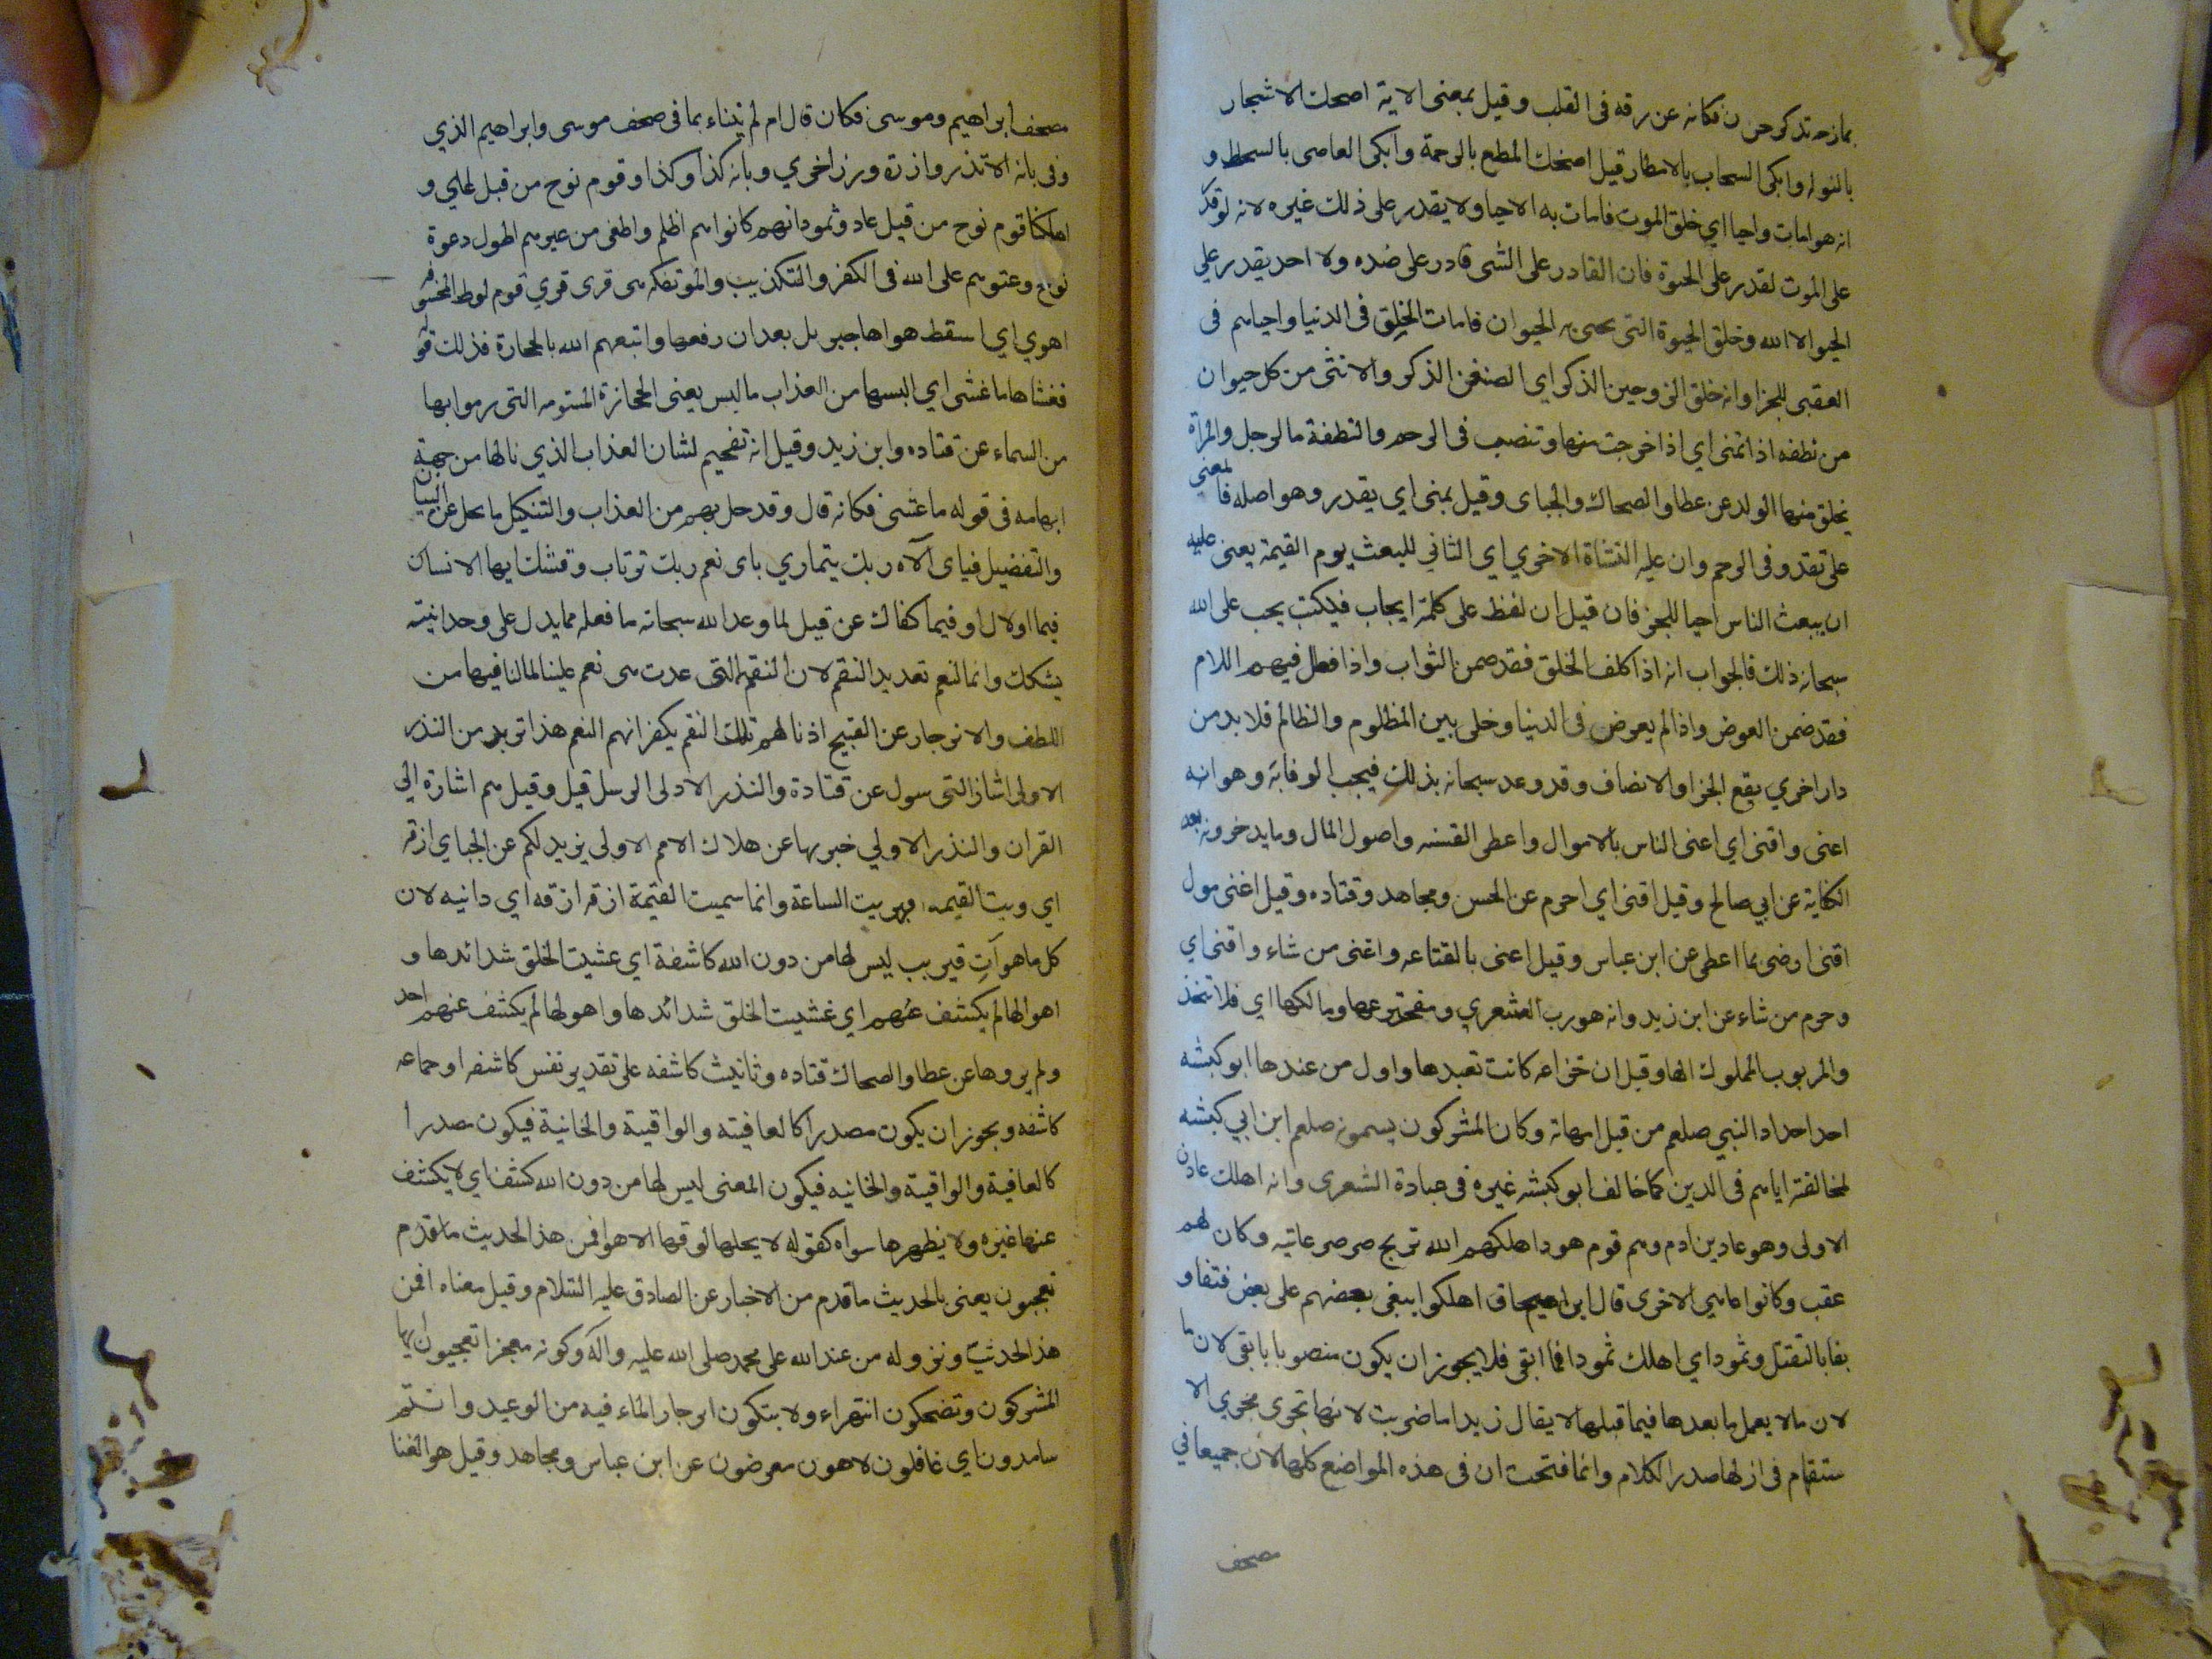 بمازحه تذكر حزن فكانه عن رقه فى القلب وقيل بمعنى الاية اضحك الاشجار
بالنوار وابكى السحاب بالامطار وقيل اضحك المطيع بالرحمة وابكى العاصى بالسخط و
انه هو امات واحيا اي خلق الموت فامات به الاحيا ولا يقدر على ذلك غيره لانه لو قدر
على الموت لقدر على الحيوة فان القادر على الشى قادر على ضده ولا احد يقدر على
الحيوة الا الله وخلق الحيوة التى يحيى به الحيوان فامات الخلق فى الدنيا واحياهم فى
العقبى للجزا وانه خلق الزوجين الذكر اي الصنفين الذكر والانثى من كل حيوان
من نطفه اذا تمنى اي اذا خرجت منها وتنصب فى الرحم والنطفة ماء الرجل والمراة
يخلق منها الولد عن عطا والضحاك والجباى وقيل تمنى اي يقدر وهو اصله فالمعنى
على تقدر فى الرحم وان عليه النشاة الاخرى اي الثاني للبعث يوم القيمة يعنى عليه
ان يبعث الناس احيا للجزا فان قيل ان لفظ على كلمة ايجاب فيكف يجب على الله
سبحانه ذلك فالجواب انه اذا كلف الخلق فقد ضمن الثواب واذا فعل فيهم اللام
فقد ضمن العوض واذا لم يعوض فى الدنيا وخلى بين المظلوم والظالم فلا بد من
دار اخري يقع الجزا والانصاف وقد وعد سبحانه بذلك فيجب الوفابه وهو انه
اغنى واقنى اي اغنى الناس بالاموال واعطى القنيه واصول المال وما يدخرونه بعد
الكفاية عن ابي صالح وقيل اقنى اي اخرم عن الحسن ومجاهد وقتاده وقيل اغنى مول
اقنى ارضى بما اعطى عن ابن عباس وقيل اغنى بالقناعه واغنى من شاء واقنى اي
وحرم من شاء عن ابن زيد وانه هو رب الشعري ومخترعها ومالكها اي فلا تتخذ
والمربوب المملوك الها وقيل ان خزاعه كانت تعبدها واول من عبدها ابو كبشه
احد اجداد النبي صلعم من قبل امهاته وكان المشركون يسمونه صلعم ابن ابي كبشه
لمخالفته اياهم فى الدين كما خالف ابو كبشه غيره فى عبادة الشعرى وانه اهلك عادن
الاولى وهو عاد بن ادم وهم قوم هود اهلكهم الله بريح صرصر عاتيه وكان لهم
عقب وكانوا عادهى الاخرى قال ابن اسحاق اهلكوا ببغى بعضهم على بعض فتفاو
بفا بالتقتل وثمود اي اهلك ثمودا فما ابقى فلا يجوز ان يكون منصوبا بابقى لان ما
لان ما لا يعمل ما بعدها فيما قبلها لا يقال زيدا ما ضربت لانها تجرى مجرى الا
ستفهام فى ان لها صدر الكلام وانما فتحت ان فى هذه المواضع كلها لان جميعا في
مصحف
مصحف ابراهيم وموسى فكان قال ام لم ينباء بما فى صحف موسى وابراهيم الذي
وفى بانه الا تذر وازرة وزر اخري وبانه كذا وكذا وقوم نوح من قبل لعلي و
اهلكنا قوم نوح من قبل عاد وثمود انهم كانوا هم اظلم واطغى من غيرهم اطول دعوة
نوح وعتوهم على الله فى الكفر والتكذيب والموتفكه هى قرى قوم لوط المخسوفه
اهوى اي اسقط هواها جبرئل بعد ان رفعها واتبعهم الله بالحجارة فذلك قوله
فغشاها ما غشى اي البسها من العذاب ما البس يعنى الحجازة المسومه التى رموا بها
من السماء عن قتاده وابن زيد وقيل انه تفخيم لشان العذاب الذي نالها من جهة
ابهامه فى قوله ما غشى فكانه قال وقد حل بهم من العذاب والتنكيل ما يحل عن البيان
والتفضيل فباى آلاء ربك يتماري باى نعم ربك ترتاب وتشك ايها الانسان
فيما اولاك او فيما كفاك عن قيل لما وعد الله سبحانه ما فعله مما يدل على وحدانيته
يشكك وانما لنعم تعديد النقم لان النقم التى عدت هى نعم علينا لمالنا فيها من
اللطف والانزجار عن القبيح اذنا لهم تلك النقم بكفرانهم النعم هذا نوبد من النذر
الاولى اشار التى سول عن قتادة والنذر الاولى الرسل قبل وقيل هم اشارة الى
القران والنذر الاولى خبر بها عن هلاك الامم الاولى يزيد لكم عن الجباي ازفه
اي ويبت القيمه وبريت الساعة وانما سميت القيمة ازفه ازفه اي دانيه لان
كل ما هو آت قريب ليس لها من دون الله كاشفة اي غشيت الخلق شدائدها و
اهوالها لم يكشف عنهم اي غشيت الخلق شدائدها واهوالها لم يكشف عنهم احد
ولم يروها عن عطا والضحاك قتاده وتانيث كاشفه على تقدير نفس كاشفه او جماعه
كاشفه ويجوز ان يكون مصدرا كالعافيته والواقية والخانية فيكون مصدرا
كالعافية والواقية والخانيه فيكون المعنى ليس لها من دون الله كشف اي لا يكشف
عنها غيره ولا يظهرها سواه كقوله لا يجليها لوقتها الا هو افمن هذا الحديث ما قدم
تعجبون يعنى بالحديث ما قدم من الاخبار عن الصادق عليه السلام وقيل معناه افمن
هذا الحديث ونزوله من عند الله على محمد صلى الله عليه وآله وكونه معجزا تعجبون ايها
المشركون وتضحكون استهزاء ولا تبكون انزجارا لماء فيه من الوعيد وانتم
سامدون اي غافلون لاهون معرضون عن ابن عباس ومجاهد وقيل هو الغنا